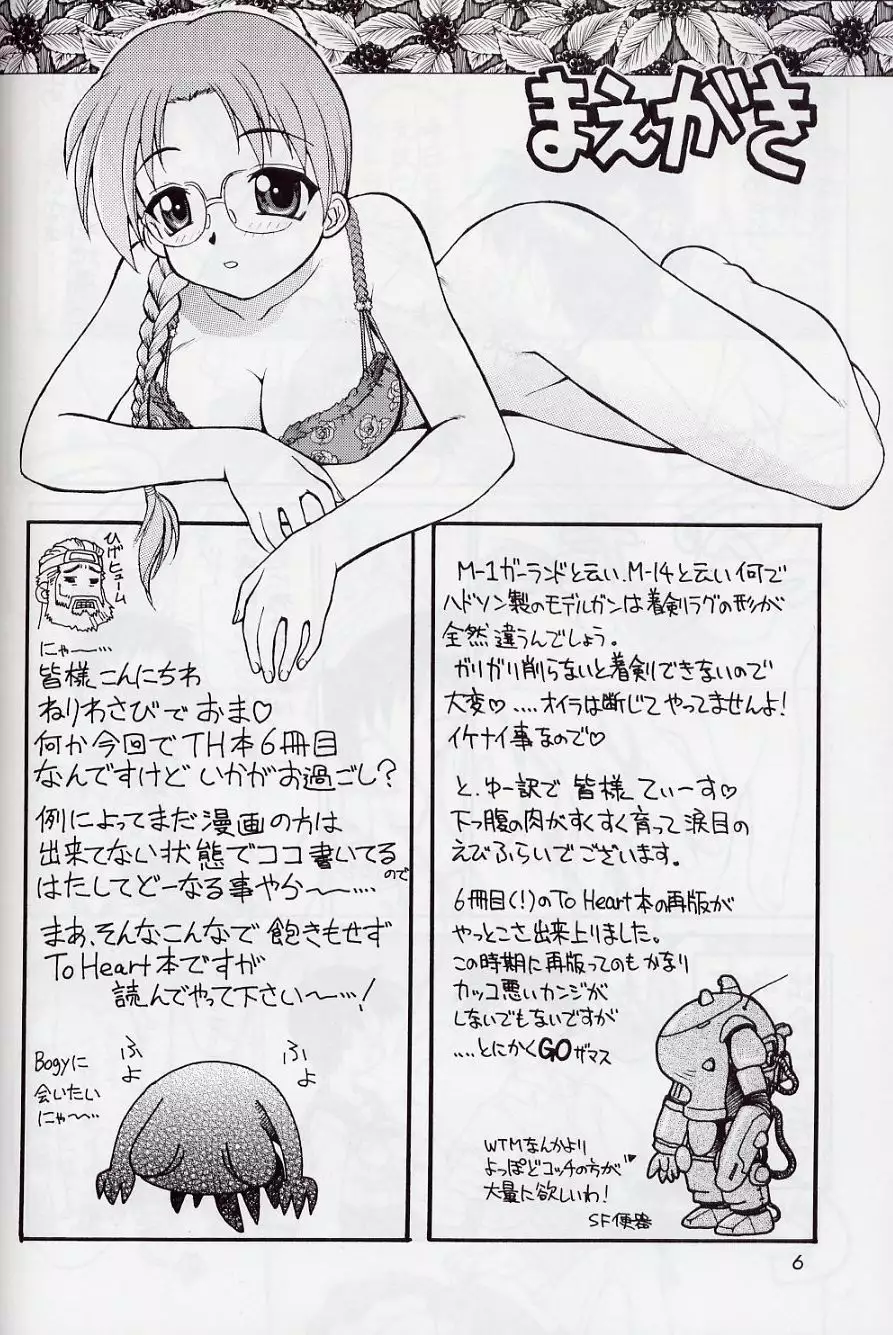 まえがき
ひげヒューム
にゃー‥‥
皆様こんにちわ
ねりわさびでおま♡
何か今回でTH本6冊目
なんですけどいかがお過ごし?
例によってまだ漫画の方は
出来てない状態でココ書いてるので
はたしてどーなる事やら〜‥‥
まあ、そんなこんなで飽きもせず
To Heart本ですが
読んでやって下さい〜‥‥!
Bogyに
会いたい
にゃ〜‥‥
ふよ
ふよ
M-1ガーランドと云い、M-14と云い何で
ハドソン製のモデルガンは着剣ラグの形が
全然違うんでしょう。
ガリガリ削らないと着剣できないので
大変♡‥‥オイラは断じてやってませんよ!
イケナイ事なので♡
と、ゆー訳で皆様てぃーす♡
下っ腹の肉がすくすく育って涙目の
えびふらいでございます。
6冊目(!)のTo Heart本の再版が
やっとこさ出来上りました。
この時期に再版ってのもかなり
カッコ悪いカンジが
しないでもないですが
‥‥とにかくGOザマス
WTMなんかより
よっぽどコッチの方が
大量に欲しいわ!
SF便器
6